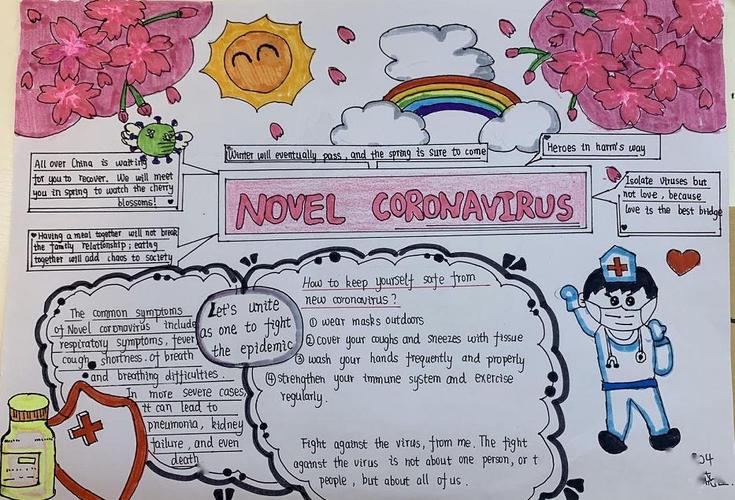 Winter will eventually pass, and the spring is sure to come
Heroes in harm's way
All over China is waiting
for you to recover. We will meet
you in spring to watch the cherry
blossoms!
Isolate viruses but
not love, because
love is the best bridge
NOVEL CORONAVIRUS
Having a meal together will not break
the family relationship; eating
together will add chaos to society
The common symptoms
of Novel coronavirus include
respiratory symptoms, fever
cough, shortness of breath
and breathing difficulties.
In more severe cases,
it can lead to
pneumonia, kidney
failure, and even
death
Let's unite
as one to fight
the epidemic
How to keep yourself safe from
new coronavirus?
① wear masks outdoors
② cover your coughs and sneezes with tissue
③ wash your hands frequently and properly
④ strengthen your immune system and exercise
regularly.
Fight against the virus, from me. The fight
against the virus is not about one person, or t
people, but about all of us.
04